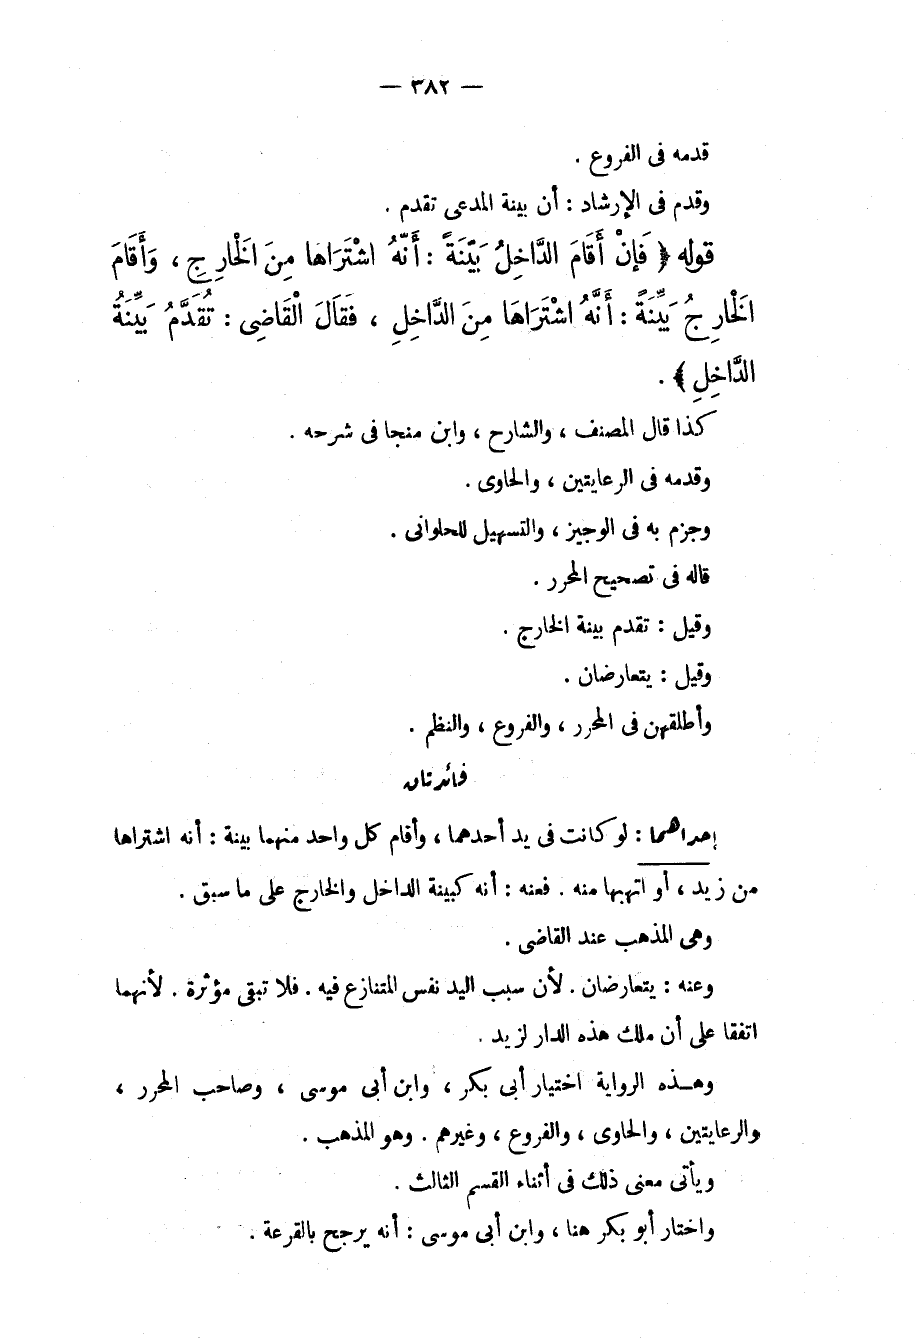 — ٣٨٢ —
قدمه فى الفروع .
وقدم فى الإرشاد : أن بينة المدعى تقدم .
قوله ﴿ فَإِنْ أَقَامَ الدَّاخِلُ بَيِّنَةً : أَنَّهُ اشْتَرَاهَا مِنَ الْخَارِجِ ، وَأَقَامَ
الْخَارِجُ بَيِّنَةً : أَنَّهُ اشْتَرَاهَا مِنَ الدَّاخِلِ ، فَقَالَ الْقَاضِى : تُقَدَّمُ بَيِّنَةُ
الدَّاخِلِ ﴾ .
كذا قال المصنف ، والشارح ، وابن منجا فى شرحه .
وقدمه فى الرعايتين ، والحاوى .
وجزم به فى الوجيز ، والتسهيل للحلوانى .
قاله فى تصحيح المحرر .
وقيل : تقدم بينة الخارج .
وقيل : يتعارضان .
وأطلقهن فى المحرر ، والفروع ، والنظم .
فائدتان
إحداهما : لو كانت فى يد أحدهما ، وأقام كل واحد منهما بينة : أنه اشتراها
من زيد ، أو اتهبها منه . فعنه : أنه كبينة الداخل والخارج على ما سبق .
وهى المذهب عند القاضى .
وعنه : يتعارضان . لأن سبب اليد نفس المتنازع فيه . فلا تبقى مؤثرة . لأنهما
اتفقا على أن ملك هذه الدار لزيد .
وهــذه الرواية اختيار أبى بكر ، وابن أبى موسى ، وصاحب المحرر ،
والرعايتين ، والحاوى ، والفروع ، وغيرهم . وهو المذهب .
ويأتى معنى ذلك فى أثناء القسم الثالث .
واختار أبو بكر هنا ، وابن أبى موسى : أنه يرجح بالقرعة .